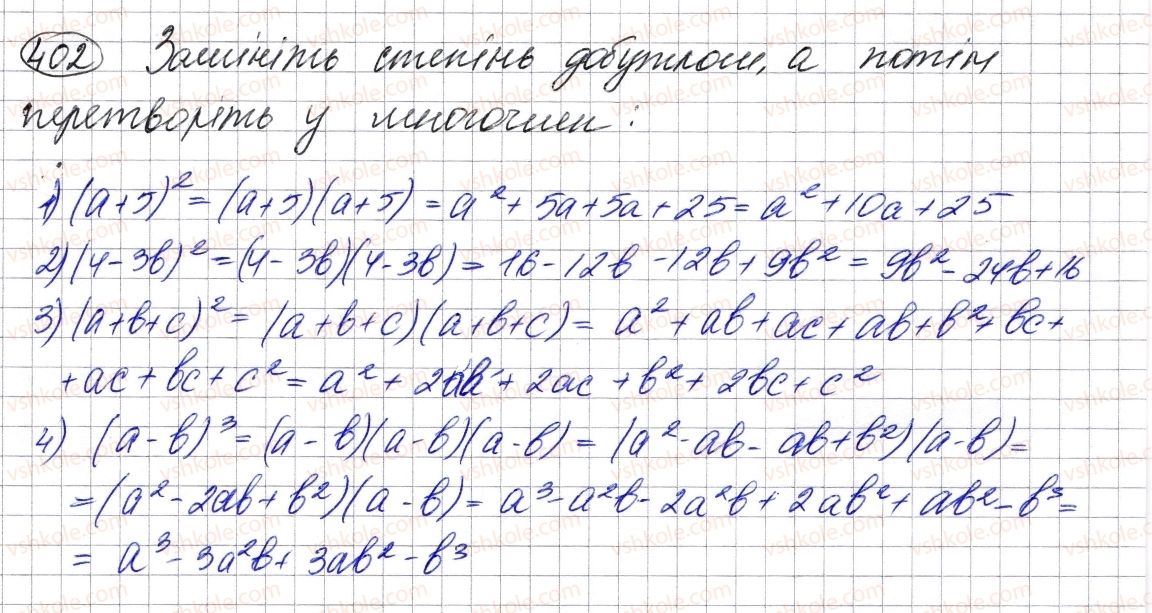 402 Замініть степінь добутком, а потім
перетворіть у многочлен:
1) (a+5)² = (a+5)(a+5) = a² + 5a + 5a + 25 = a² + 10a + 25
2) (4-3b)² = (4-3b)(4-3b) = 16 - 12b - 12b + 9b² = 9b² - 24b + 16
3) (a+b+c)² = (a+b+c)(a+b+c) = a² + ab + ac + ab + b² + bc +
+ ac + bc + c² = a² + 2ab + 2ac + b² + 2bc + c²
4) (a-b)³ = (a-b)(a-b)(a-b) = (a² - ab - ab + b²)(a-b) =
= (a² - 2ab + b²)(a-b) = a³ - a²b - 2a²b + 2ab² + ab² - b³ =
= a³ - 3a²b + 3ab² - b³
vshkole.com